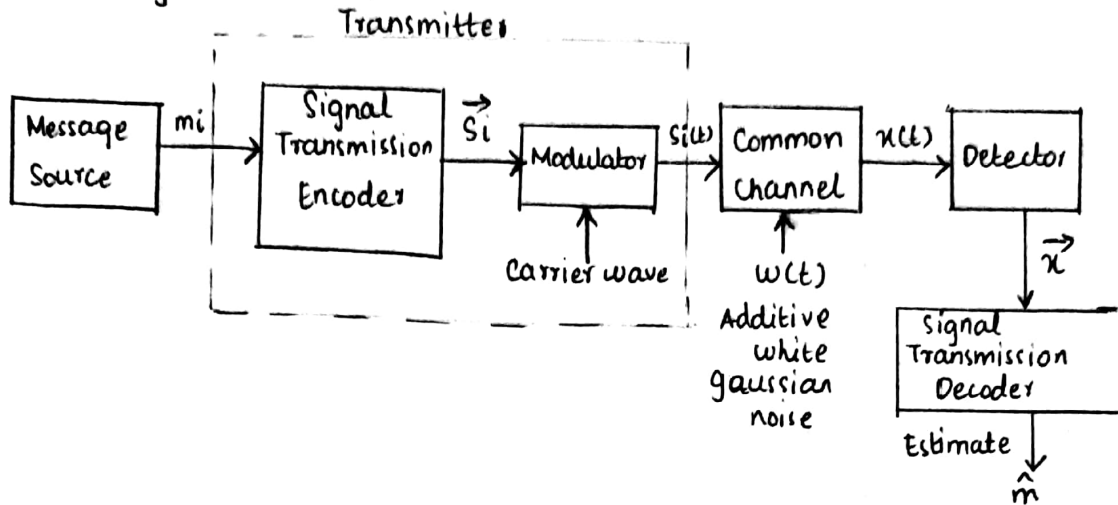 Transmitter
Message
Source
mi
Signal
Transmission
Encoder
Si
Modulator
Carrier wave
Si(t)
Common
Channel
w(t)
Additive
white
gaussian
noise
x(t)
Detector
x
Signal
Transmission
Decoder
Estimate
m̂